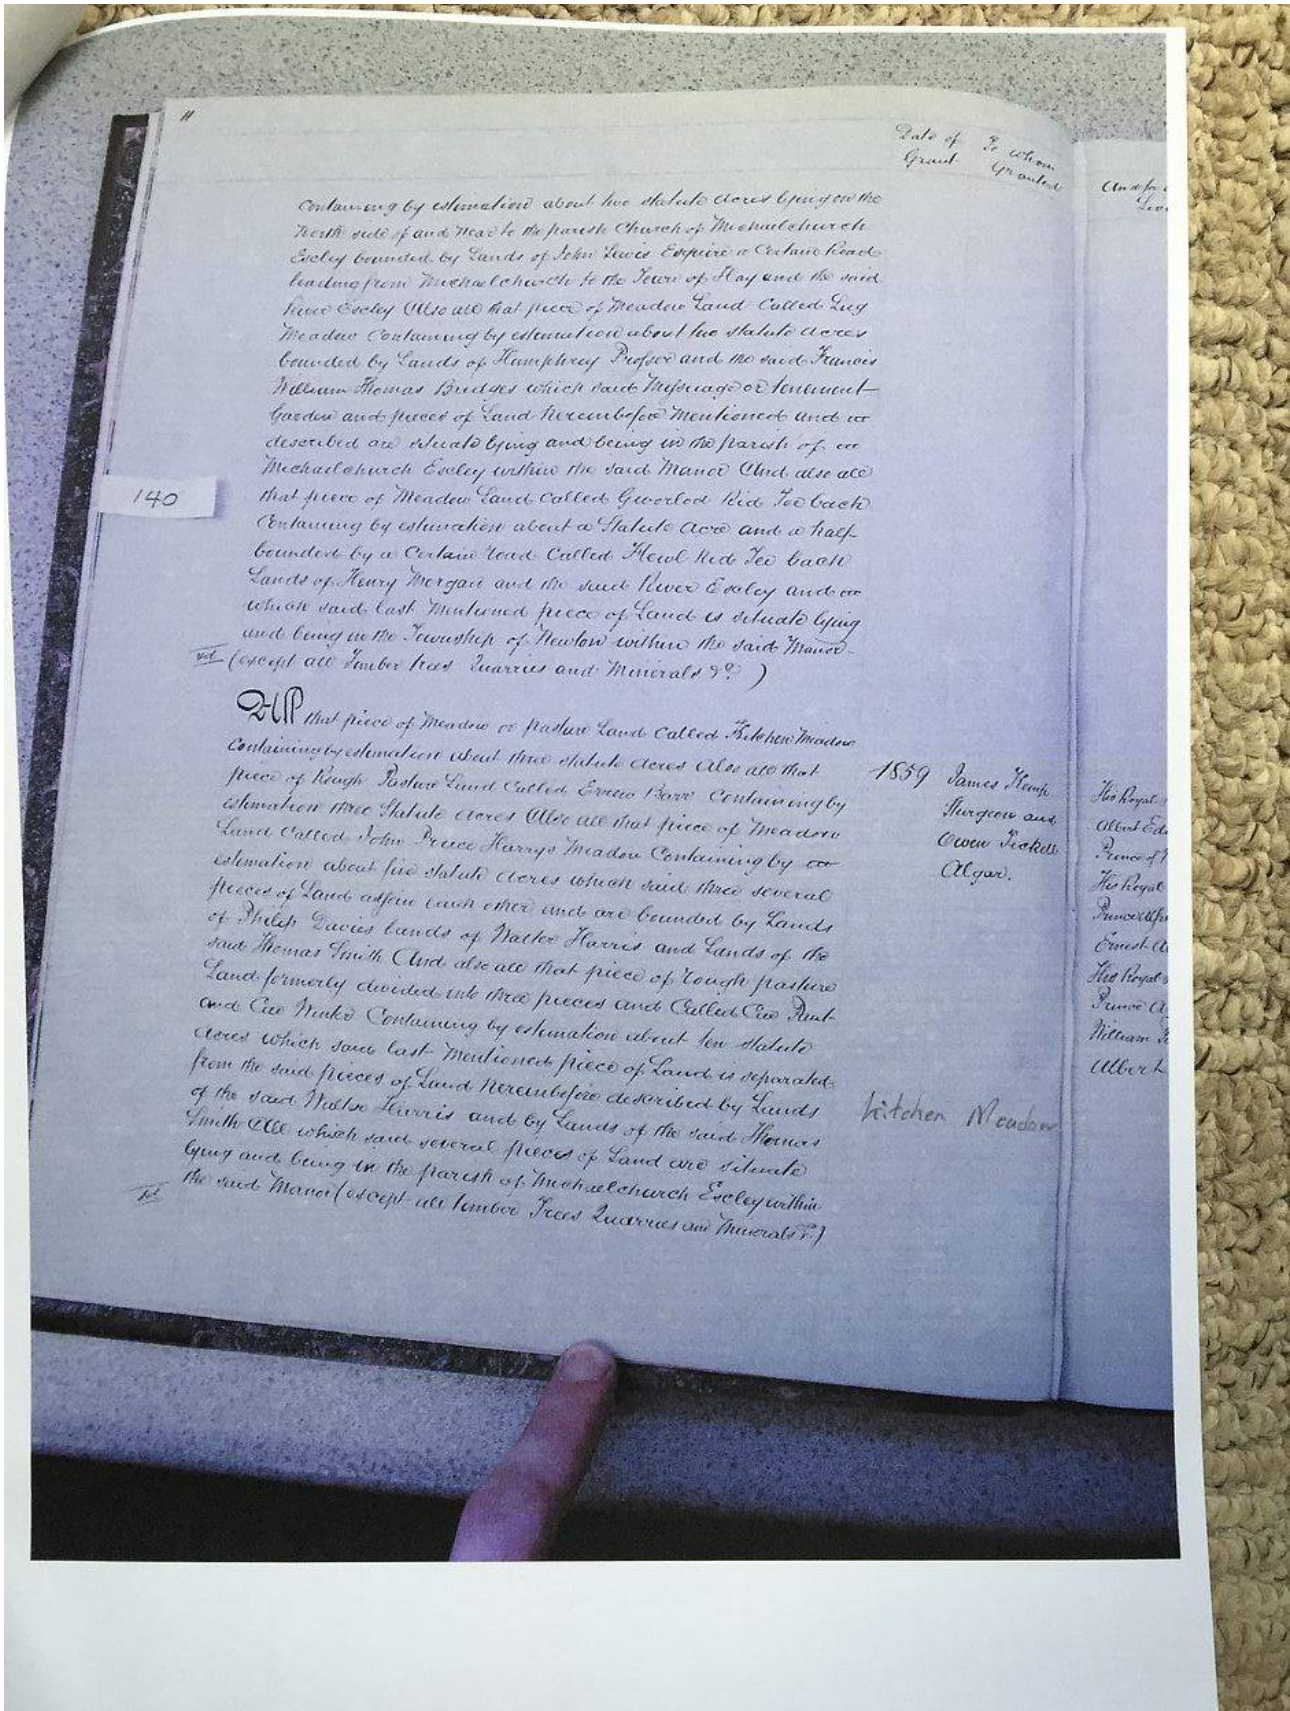 11
Date of Grant
To whom Granted
And for
containing by estimation about two statute acres lying on the
North side of and near to the parish Church of Michaelchurch
Escley bounded by Lands of John Lewis Esquire a Certain Road
leading from Michaelchurch to the Town of Hay and the said
River Escley Also all that piece of Meadow Land Called Lug
Meadow Containing by estimation about two statute acres
bounded by Lands of Humphrey Prosser and the said Francis
William Thomas Bridges which said Messuage or tenement
Garden and pieces of Land hereinbefore Mentioned and
described are situate lying and being in the parish of
Michaelchurch Escley within the said Manor And also all
140
that piece of Meadow Land Called Gworlod Rid Tee back
Containing by estimation about a Statute Acre and a half
bounded by a Certain road Called Heol Rid Tee back
Lands of Henry Morgan and the said River Escley and
which said last Mentioned piece of Land is situate lying
and being in the Township of Newton within the said Manor
(except all Timber trees Quarries and Minerals &c.)
All that piece of Meadow or pasture Land Called Kitchen Meadow
containing by estimation about three statute acres Also all that
piece of Rough Pasture Land Called Errow Barr Containing by
estimation three Statute acres Also all that piece of Meadow
Land Called John Preece Harrys Meadow Containing by
estimation about five statute acres which said three several
pieces of Land adjoin each other and are bounded by Lands
of Philip Davies lands of Walter Harris and Lands of the
said Thomas Smith And also all that piece of rough pasture
Land formerly divided into three pieces and Called Cae
and Cae Containing by estimation about ten statute
acres which said last Mentioned piece of Land is separated
from the said pieces of Land hereinbefore described by Lands
of the said Walter Harris and by Lands of the said Thomas
Smith All which said several pieces of Land are situate
lying and being in the parish of Michaelchurch Escley within
the said Manor (except all timber Trees Quarries and Minerals &c.)
1859
James Kemp
Sturgeon and
Owen Tickell
Algar.
Kitchen Meadow
His Royal
Albert
Prince of
His Royal
Prince
Ernest
His Royal
Prince
William
Albert